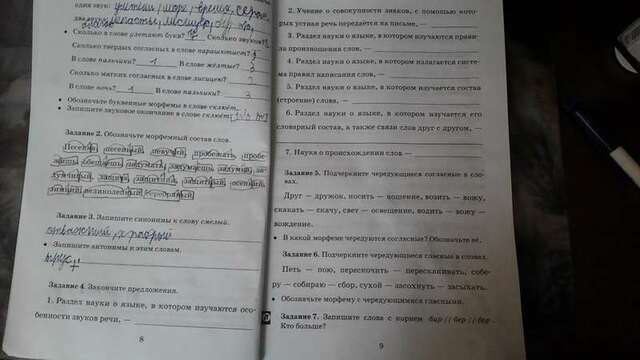 один звук: учитель, море, время, серое
• Сколько в слове улетают букв? Сколько звуков?
Сколько твёрдых согласных в слове парашютист? 3
В слове пальчики? 1 В слове жёлтые? 3
Сколько мягких согласных в слове лисицею? 2
В слове ночь? 1 В слове пальчики? 3
• Обозначьте буквенные морфемы в слове склюёт.
• Запишите звуковое окончание в слове склюёт:
Задание 2. Обозначьте морфемный состав слов.
Песенка, песенный, певучий, пробежать, пробе-
жишь, оббежишь, задумать, задумаешь, задумка, за-
думчивый, защита, защитник, защитный, осенний,
зимний, великолепный, серебряный.
Задание 3. Запишите синонимы к слову смелый.
отважный, храбрый
• Запишите антонимы к этим словам.
трус
Задание 4. Закончите предложения.
1. Раздел науки о языке, в котором изучаются осо-
бенности звуков речи, —
8
2. Учение о совокупности знаков, с помощью кото-
рых устная речь передаётся на письме, —
3. Раздел науки о языке, в котором изучаются прави-
ла произношения слов, —
4. Раздел науки о языке, в котором излагается систе-
ма правил написания слов, —
5. Раздел науки о языке, в котором изучается состав
(строение) слова, —
6. Раздел науки о языке, в котором изучается его
словарный состав, а также связи слов друг с другом, —
7. Наука о происхождении слов —
Задание 5. Подчеркните чередующиеся согласные в сло-
вах.
Друг — дружок, носить — ношение, возить — вожу,
скакать — скачу, свет — освещение, водить — вожу —
вождение.
• В какой морфеме чередуются согласные? Обозначьте её.
Задание 6. Подчеркните чередующиеся гласные в словах.
Петь — пою, перескочить — перескакивать, собе-
ру — собираю — сбор, сухой — засохнуть — засыхать.
• Обозначьте морфему с чередующимися гласными.
Задание 7. Запишите слова с корнем бир // бер // бор
Кто больше?
9